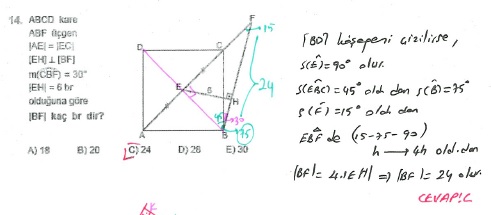 14. ABCD kare
ABF üçgen
|AE| = |EC|
[EH] ⊥ [BF]
m(CBF) = 30°
|EH| = 6 br
olduğuna göre
|BF| kaç br dir?
A) 18 B) 20 C) 24 D) 26 E) 30
F
15
D C
24
E 6
H
45 30
A B 75
[BD] köşegeni çizilirse,
s(Ê)=90° olur.
s(EBC)=45° old dan s(B)=75°
s(F)=15° old dan
EBF de (15-75-90)
h → 4h old.dan
|BF|= 4.|EH| ⇒ |BF|= 24 olur.
CEVAP:C